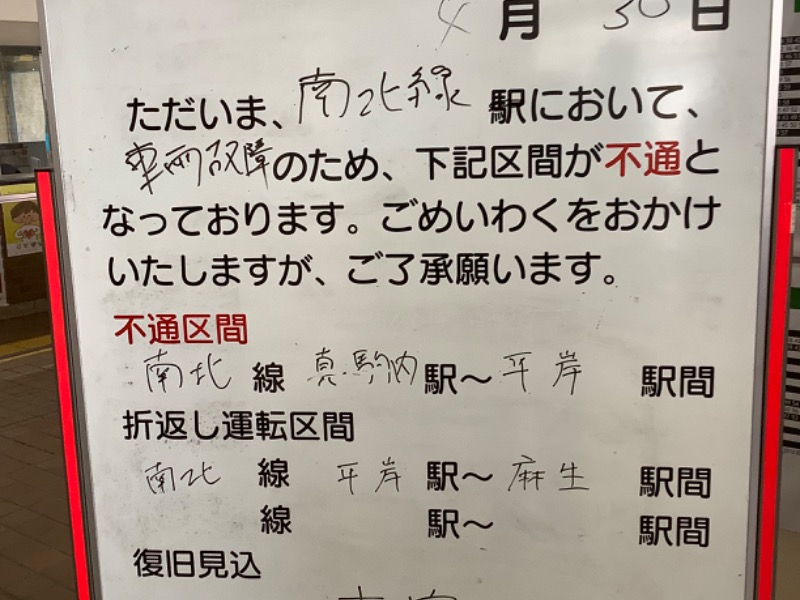 4月30日
ただいま、南北線 駅において、
車両故障のため、下記区間が不通と
なっております。ごめいわくをおかけ
いたしますが、ご了承願います。
不通区間
南北 線 真駒内 駅～ 平岸 駅間
折返し運転区間
南北 線 平岸 駅～ 麻生 駅間
線 駅～ 駅間
復旧見込